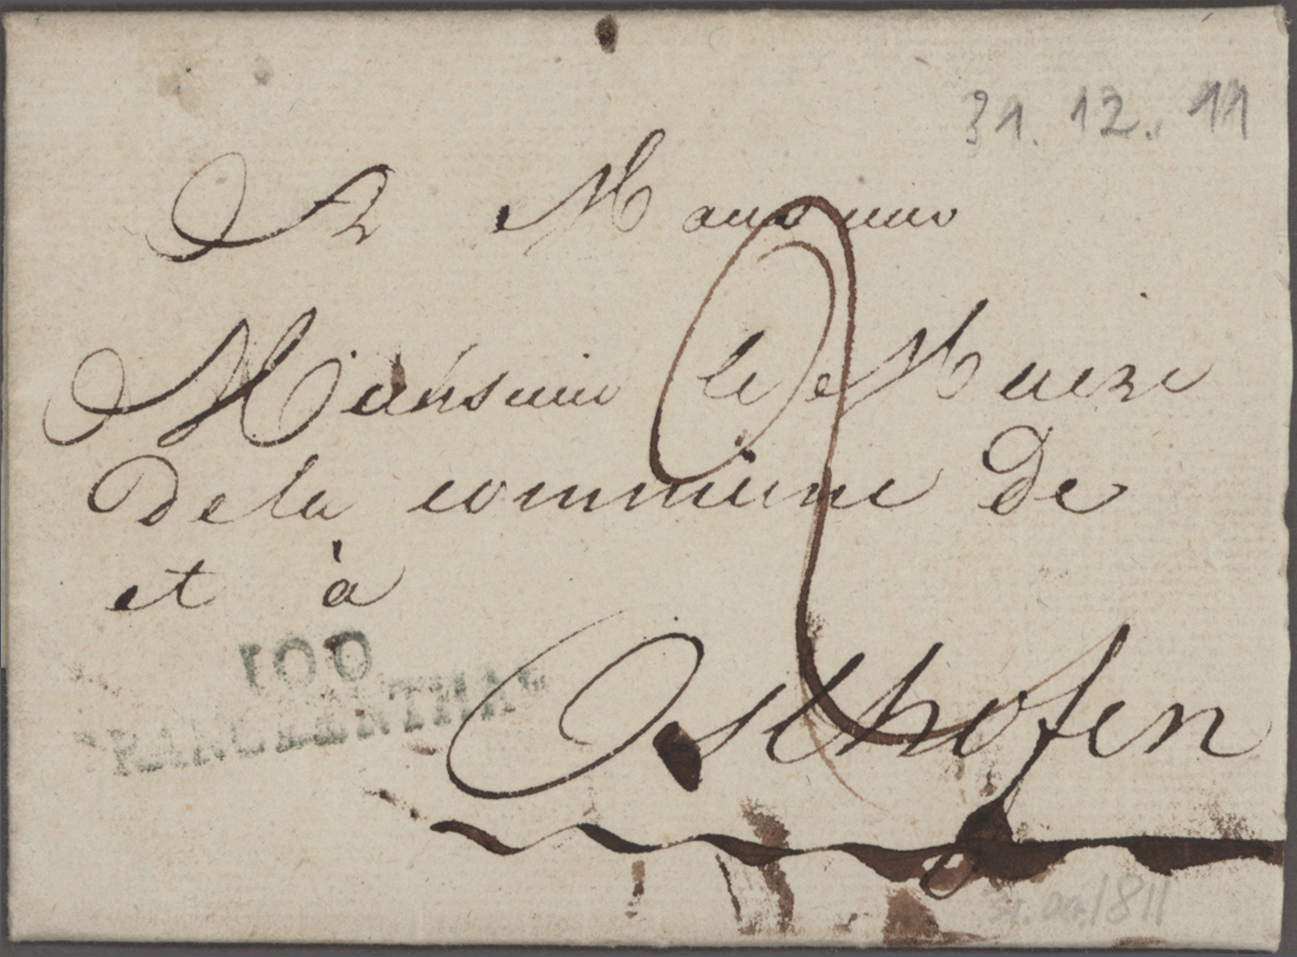 31. 12. 11
A Monsieur
Monsieur le Maire
De la commune De
et à
100
FRANCKENTHAL
Osthofen
2
31. Dec. 1811